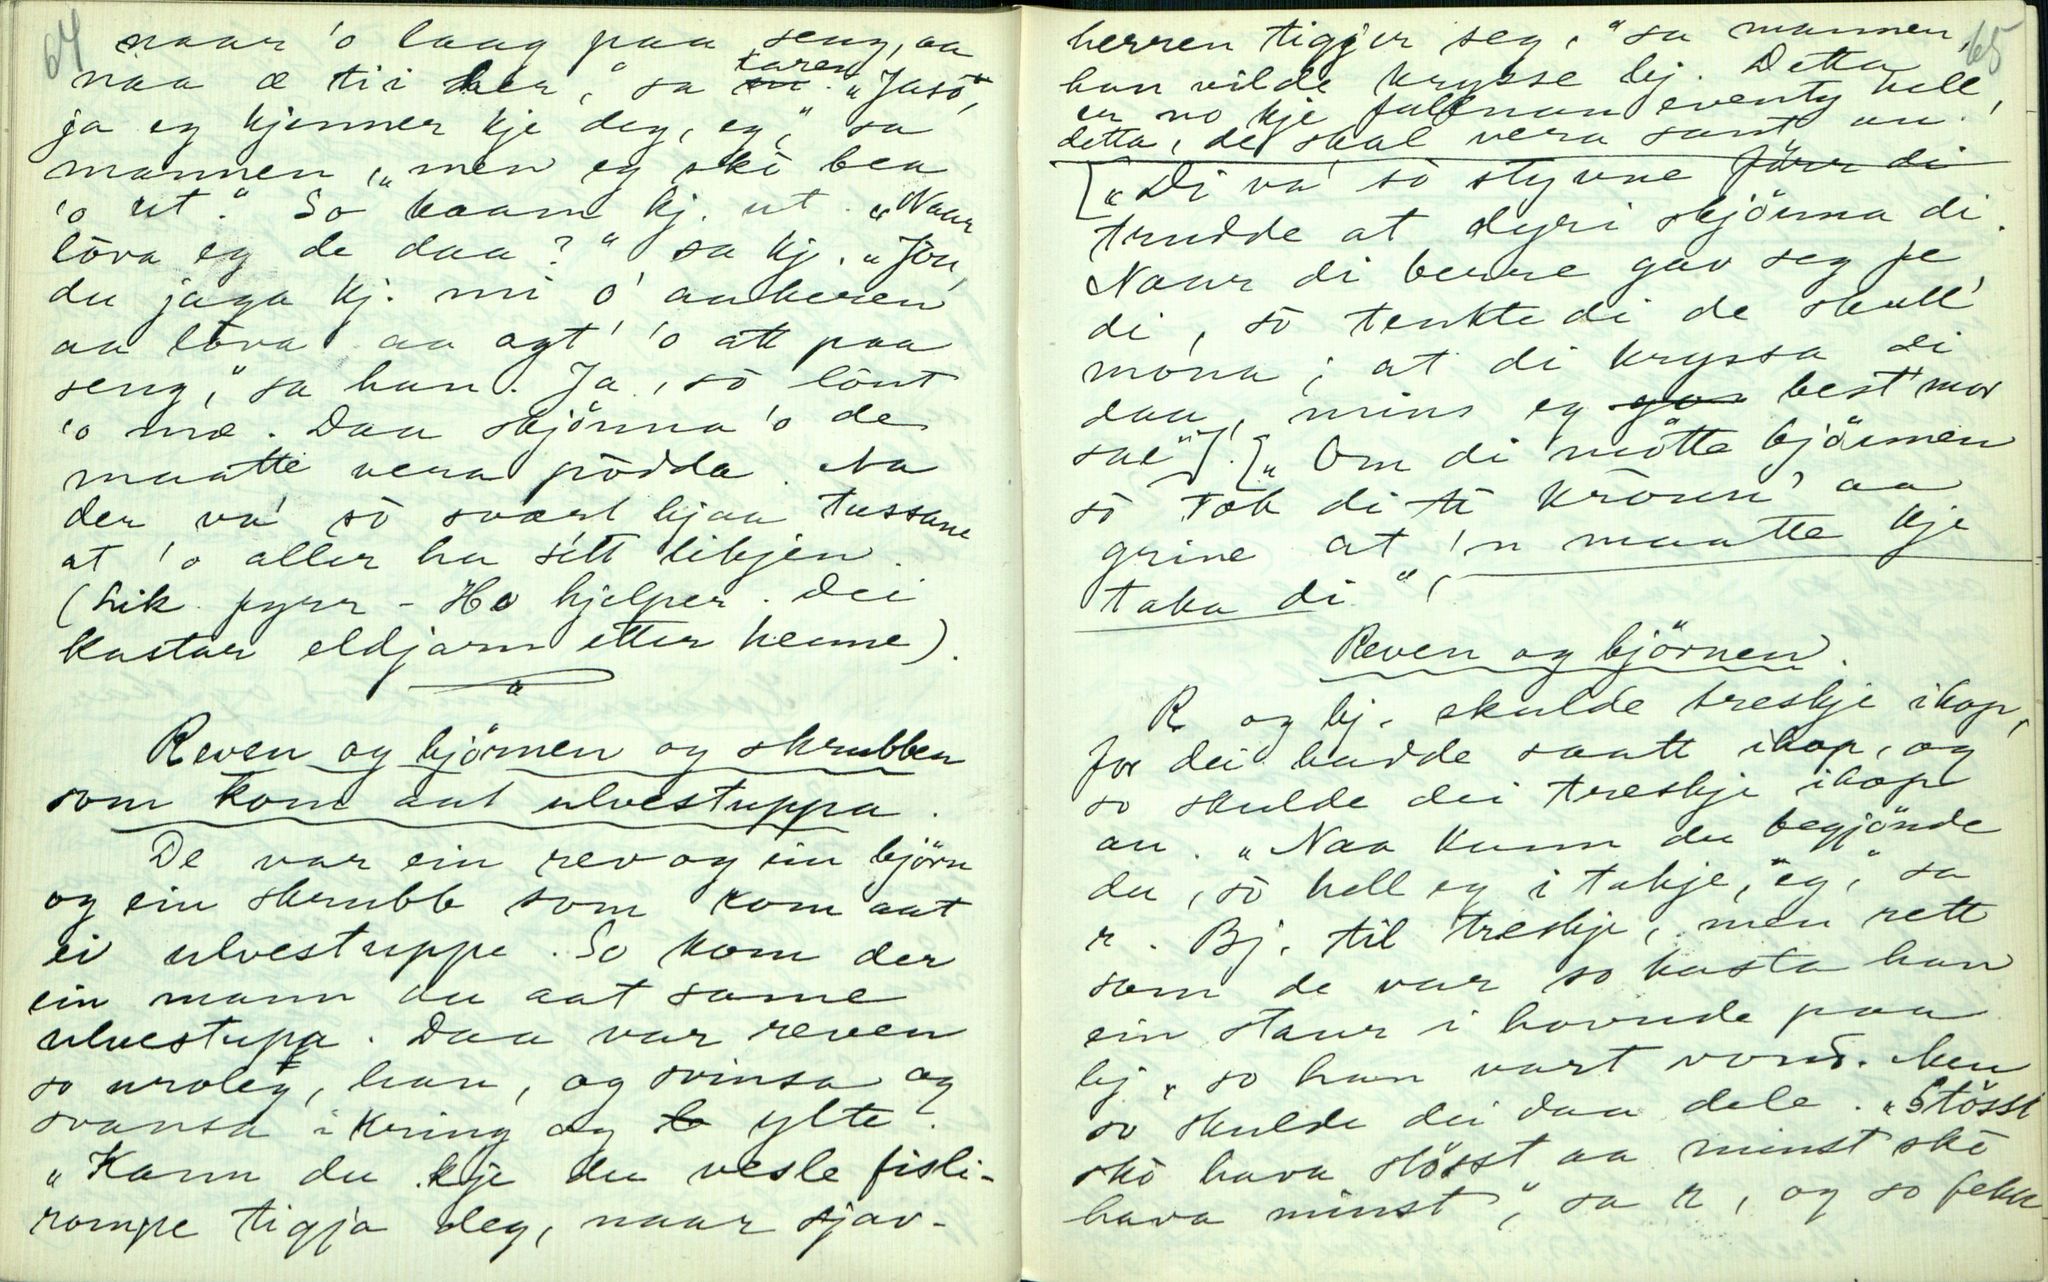 64
naar 'o laag paa seng, aa
naa æ ti i her," sa karen. "Jasö,
ja eg kjenner kje deg, eg," sa
mannen, "men eg skö bea
'o ut." So kaam kj. ut. "Naar
löva eg de daa?" sa kj. "Jöu,
du jaga kj. mi ó' aakeren
aa löva aa agt' 'o att paa
seng," sa han. Ja, sö lönt
'o mæ. Daa skjönna 'o de
maatte vera rödda. Na
der va' sö svært hjaa tussane
at 'o aller ha sitt likjen.
(Lik. fyrr - Ho hjelper. Dei
kastar eldjarn etter henne).
Reven og björnen og skrubben
som kom aat ulvestuppa.
De var ein rev og ein björn
og ein skrubb som kom aat
ei ulvestuppe. So kom der
ein mann au aat same
ulvestupa. Daa var reven
so uroleg, han, og svinsa og
svansa ikring og ylte.
"Kann du kje du vesle fisli-
rompe tigja deg, naar sjav-
65
herren tigjer seg," sa mannen,
han vilde krysse bj. Detta
er no kje fullnan eventy hell,
detta, de skal vera sant au.
["Di va' sö styvne förr di
trudde at dyri skjönna di.
Naar di berre gav seg je
di, sö tenkte di de skull'
móna; at di kryssa di
daa, mins eg best'mor
sae"]. ["Om di mötte björnen
sö tok di ti kröun' aa
grine at 'n maatte kje
taka di".
Reven og björnen.
R og bj. skulde treskje ihop,
for dei hadde saatt ihop, og
so skulde dei treskje ihop
au. "Naa kann du begjönde
du, sö hell eg i takje, eg," sa
r. Bj. til treskje, men rett
som de var so kasta han
ein staur i hovude paa
bj, so han vart vond. Men
so skulde dei daa dele. "Stösst
skö hava stösst aa minst skö
hava minst," sa r, og so fekk